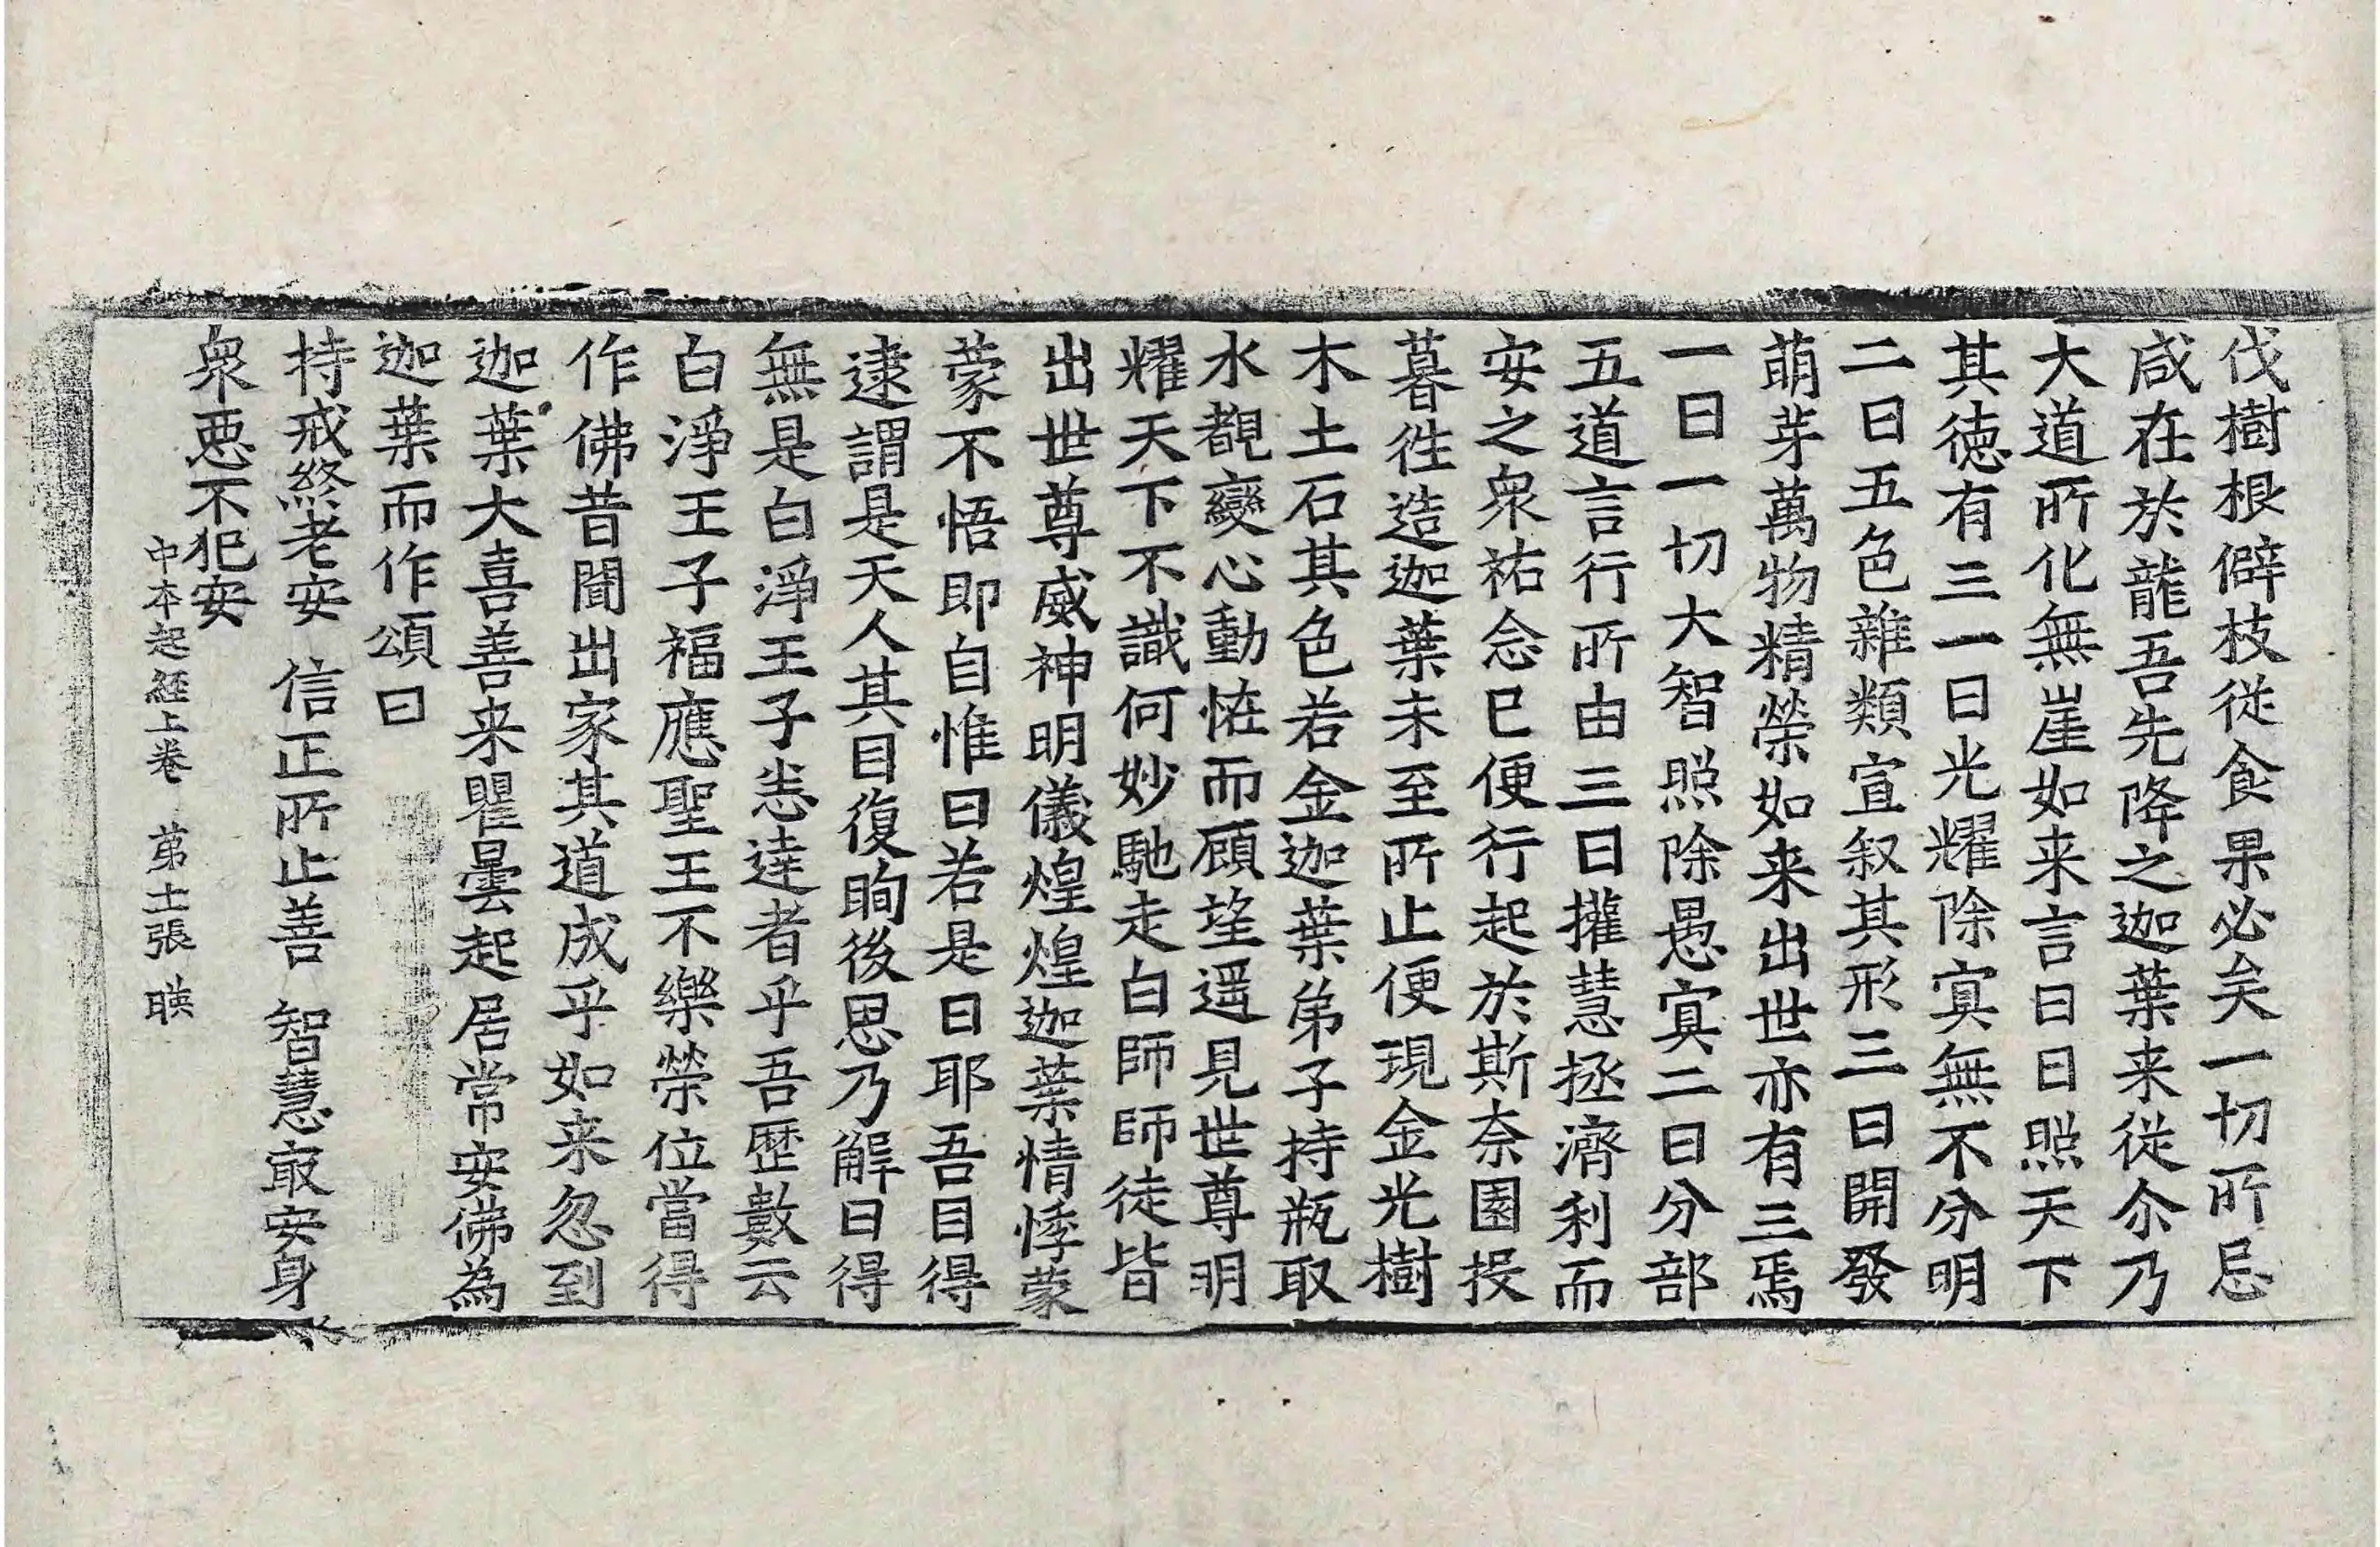 伐樹根僻枝従食果必矣一切所忌
咸在於龍吾先降之迦葉来従尒乃
大道所化無崖如来言曰日照天下
其徳有三一曰光耀除冥無不分明
二曰五色雜類宣叙其形三曰開發
萌芽萬物精榮如来出世亦有三焉
一曰一切大智照除愚冥二曰分部
五道言行所由三曰攉慧拯濟利而
安之衆祐念已便行起於斯奈園投
暮徃造迦葉未至所止便現金光樹
木土石其色若金迦葉弟子持瓶取
水覩變心動恠而顧望遥見世尊明
耀天下不識何妙馳走白師師徒皆
出世尊威神明儀煌煌迦葉情悸蒙
蒙不悟即自惟曰若是日耶吾目得
逮謂是天人其目復眴後思乃解曰得
無是白淨王子悉達者乎吾歷數云
白淨王子福應聖王不樂榮位當得
作佛昔聞出家其道成乎如来忽到
迦葉大喜善来瞿曇起居常安佛為
迦葉而作頌曰
持戒終老安　信正所止善　智慧㝡安身
衆悪不犯安
中本起経上卷　苐十二張　暎